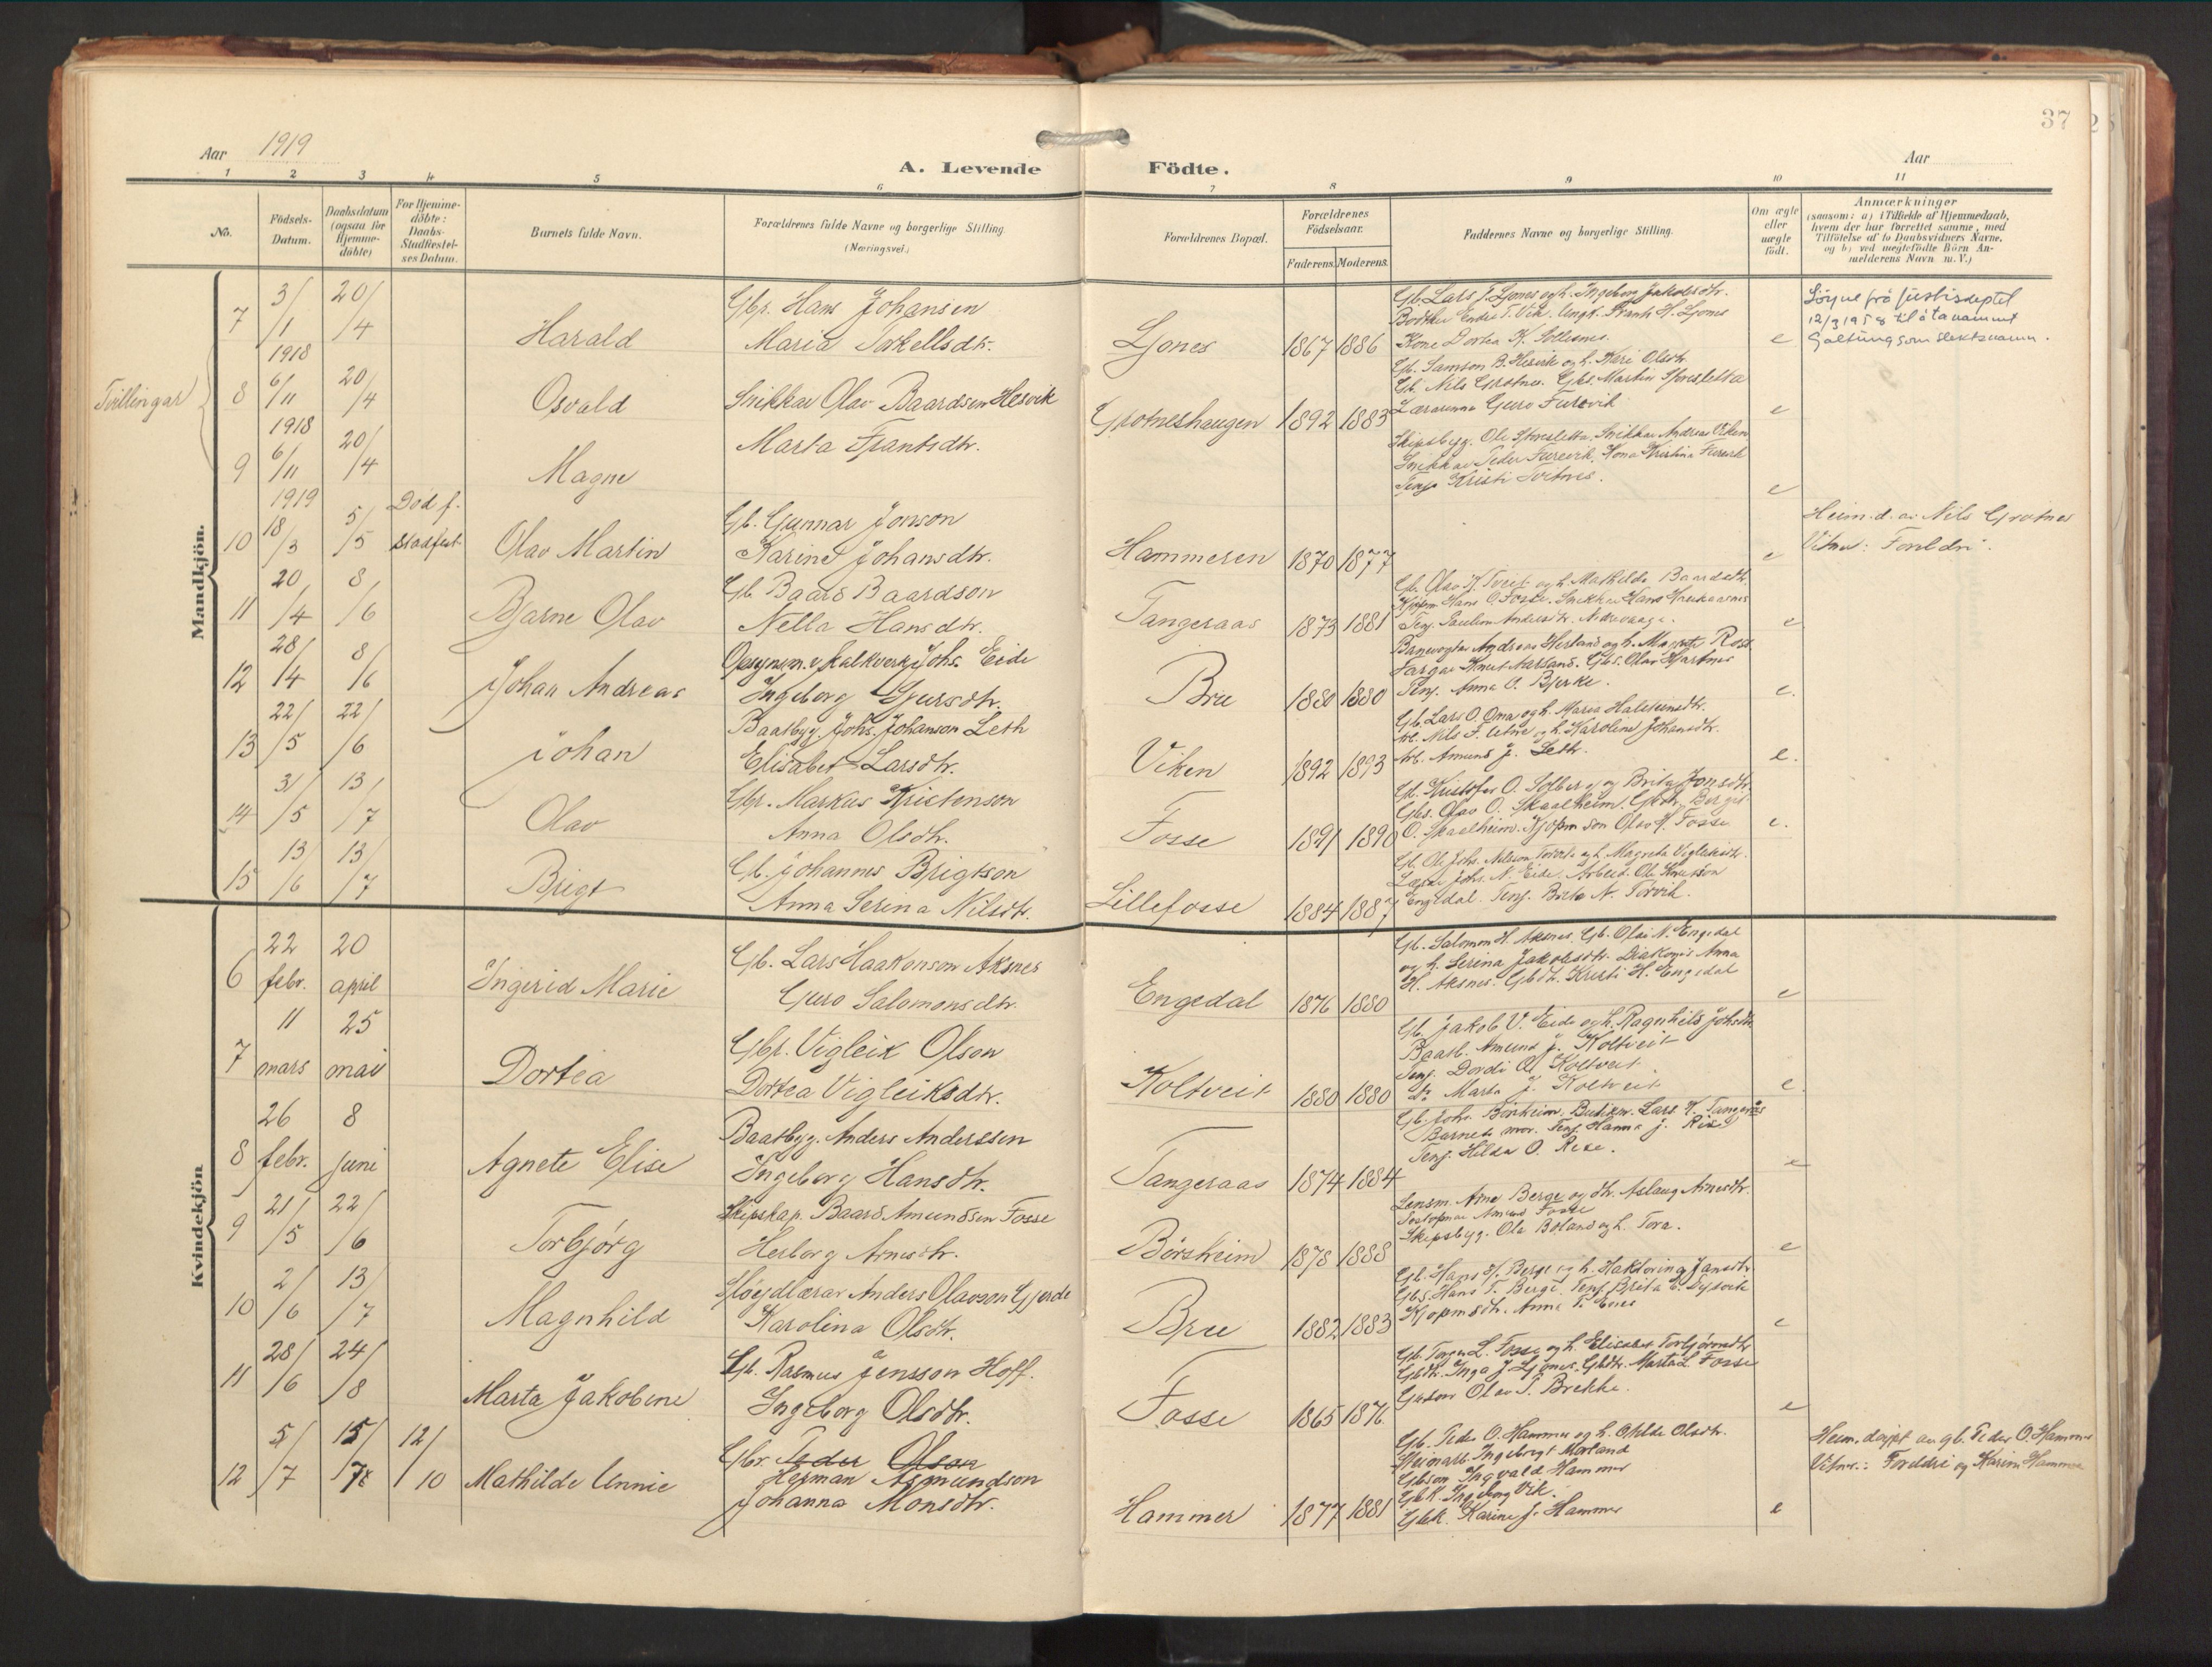 37
Aar 1919
A. Levende Födte.
Aar
1 2 3 4 5 6 7 8 9 10 11
No.
Födsels-Datum.
Daabsdatum (ogsaa for Hjemme-döbte)
For Hjemme-döbte: Daabs-Stadfæstel-ses Datum.
Barnets fulde Navn.
Forældrenes fulde Navne og borgerlige Stilling.
(Næringsvei.)
Forældrenes Bopæl.
Forældrenes Födselsaar.
Faderens. Moderens.
Faddernes Navne og borgerlige Stilling.
Om ægte eller uægte födt.
Anmærkninger
(saasom: a) i Tilfælde af Hjemmedaab,
hvem der har forrettet samme, med
Tilföielse af to Daabsvidners Navne,
og b) ved uægtefödte Börn An-
melderens Navn m. V.)
Mandkjön.
7 3/1 20/4 Harald
Gbr. Hans Johansen
Maria Torkellsdtr.
Ljones 1867 1886
Gb. Lars J. Ljones og h. Ingeborg Jakobsdtr.
Kone Dortea K. Solesnes.
e
Löyve frå Justisdeptet
12/3 1958 til å ta namnet
Galtung som slektsnamn.
Tvillingar
8 1918 6/11 20/4 Osvald
Snikkar Olav Baardsen Hesvik
Marta Frantsdtr.
Grotneshaugen 1892 1883
Gb. Samson B. Hesvik og h. Kari Olsdtr.
Gb. Nils Grotnes. Gbs. Martin Storesletta
Lærarinna Guro Furevik
e
9 1918 6/11 20/4 Magne
Skipsbyg. Ole Storesletta. Snikkar Andreas Viken
Snikkar Peder Furevik. Kona Kristina Furevik
Tenj. Kristi Tveitnes.
e
10 1919 18/3 5/5 Död f. stadfest. Olav Martin
Gb. Gunnar Jonson
Karine Johansdtr.
Hammeren 1870 1877
e
Heim.d. av Nils Grotnes
Vitner: Foreldri.
11 20/4 8/6 Bjarne Olav
Gb. Baard Baardson
Nella Hansdtr.
Tangeraas 1873 1881
Gb. Olav K. Tveit og h. Mathilde Baardsdtr.
Kjöpm. Hans O. Fosse. Snikkar Hans
e
12 28/4 8/6 Johan Andreas
Johs. Eide
Ingeborg Sjursdtr.
Brue 1880 1880
Banevogter Andreas Herland og h.
Fargar Knut Aarland. Gbs. Olav Hjartnes
Tenj. Anna O. Bjerke.
e.
13 22/5 22/6 Johan
Baatbyg. Johs. Johanson Leth
Elisabet Larsdtr.
Viken 1892 1893
Gb. Lars O. Oma og h. Maria Halsteinsdtr.
Arb. Nils F. Utne og h. Karoline Johansdtr.
Arb. Amund J. Leth.
e.
14 31/5 13/7 Olav
Gbr. Markus Kristenson
Anna Olsdtr.
Fosse 1891 1890
Gb. Kristofer O. Solberg og Brita Jonsdtr.
Gbs. Olav O. Skaalheim. Gbdtr. Bergit
O. Skaalheim. Kjöpm. son Olav H. Fosse
e.
15 13/6 13/7 Brigt
Gb. Johannes Brigtson
Anna Serina Nilsdtr.
Lillefosse 1884 1887
Johs. N. Eide. Arbeid. Ole Knutson
Engedal. Tenj. Brita N. Torvik.
Kvindekjön
6 22 febr. 20 april Ingerid Marie
Gb. Lars Haakonson Aksnes
Guro Salomonsdtr.
Engedal 1876 1880
Gb. Salomon H. Aksnes. Gb. Olai N. Engedal
og h. Serina Jakobsdtr. Diakonis Anna
H. Aksnes. Gbdtr. Kristi H. Engedal
e
7 11 mars 25 mai Dortea
Gbr. Vigleik Olson
Dortea Vigleiksdtr.
Koltveit 1880 1880
Gb. Jakob V. Eide og h. Ragnhild Johsdtr.
Baatb. Amund J. Koltveit
Tenj. Dordi O. Koltveit.
Do Marta J. Koltveit
e.
8 26 febr. 8 juni Agnete Elise
Baatbyg. Anders Anderssen
Ingeborg Hansdtr.
Tangeraas 1874 1884
Gb. Johs. Börsheim. Butikm. Lars K. Tangeraas
Barnets mor. Tenj. Hanna J. Rise
Tenj. Hilda O. Rese.
e
9 21/5 22/6 Torbjörg
Skipskap. Baard Amundsen Fosse
Herborg Arnesdtr.
Börsheim 1878 1888
Lensm. Arne Berge og dtr. Aslaug Arnesdtr.
Postopnar Amund Fosse
Skipsbyg. Ola Boland og h. Tora.
e
10 2/6 13/7 Magnhild
Slöydlærar Anders Olavson Gjerde
Karolina Olsdtr.
Brue 1882 1883
Gb. Hans H. Berge og h. Haktorina Jansdtr.
Gbs. Hans T. Berge. Tenj. Brita
Kjöpmsdtr. Anna T. Enes
e
11 28/6 24/8 Marta Jakobine
Gb. Rasmus Jensson Hoff.
Ingeborg Olsdtr.
Fosse 1865 1876
Gb. Torger L. Fosse og h. Elisabet Torbjörnsdtr.
Gbdtr. Inga J. Ljones. Gbdtr. Marta L. Fosse
Gutson Olav T. Brekke.
e
12 5/7 15/7 12/10 Mathilde Unnie
Gbr. Peder Olson
Herman Asmundson
Johanna Monsdtr.
Hammer 1877 1881
Gb. Peder O. Hammer og h. Olsdtr.
Ingebrigt Morland
Gbson Ingvald Hammer
Gbk. Ingeborg Vik.
Gbk. Karine J. Hammer
e
Heim. döypt av gb. Peder O. Hammer
Vitner: Foreldri og Karine Hammer